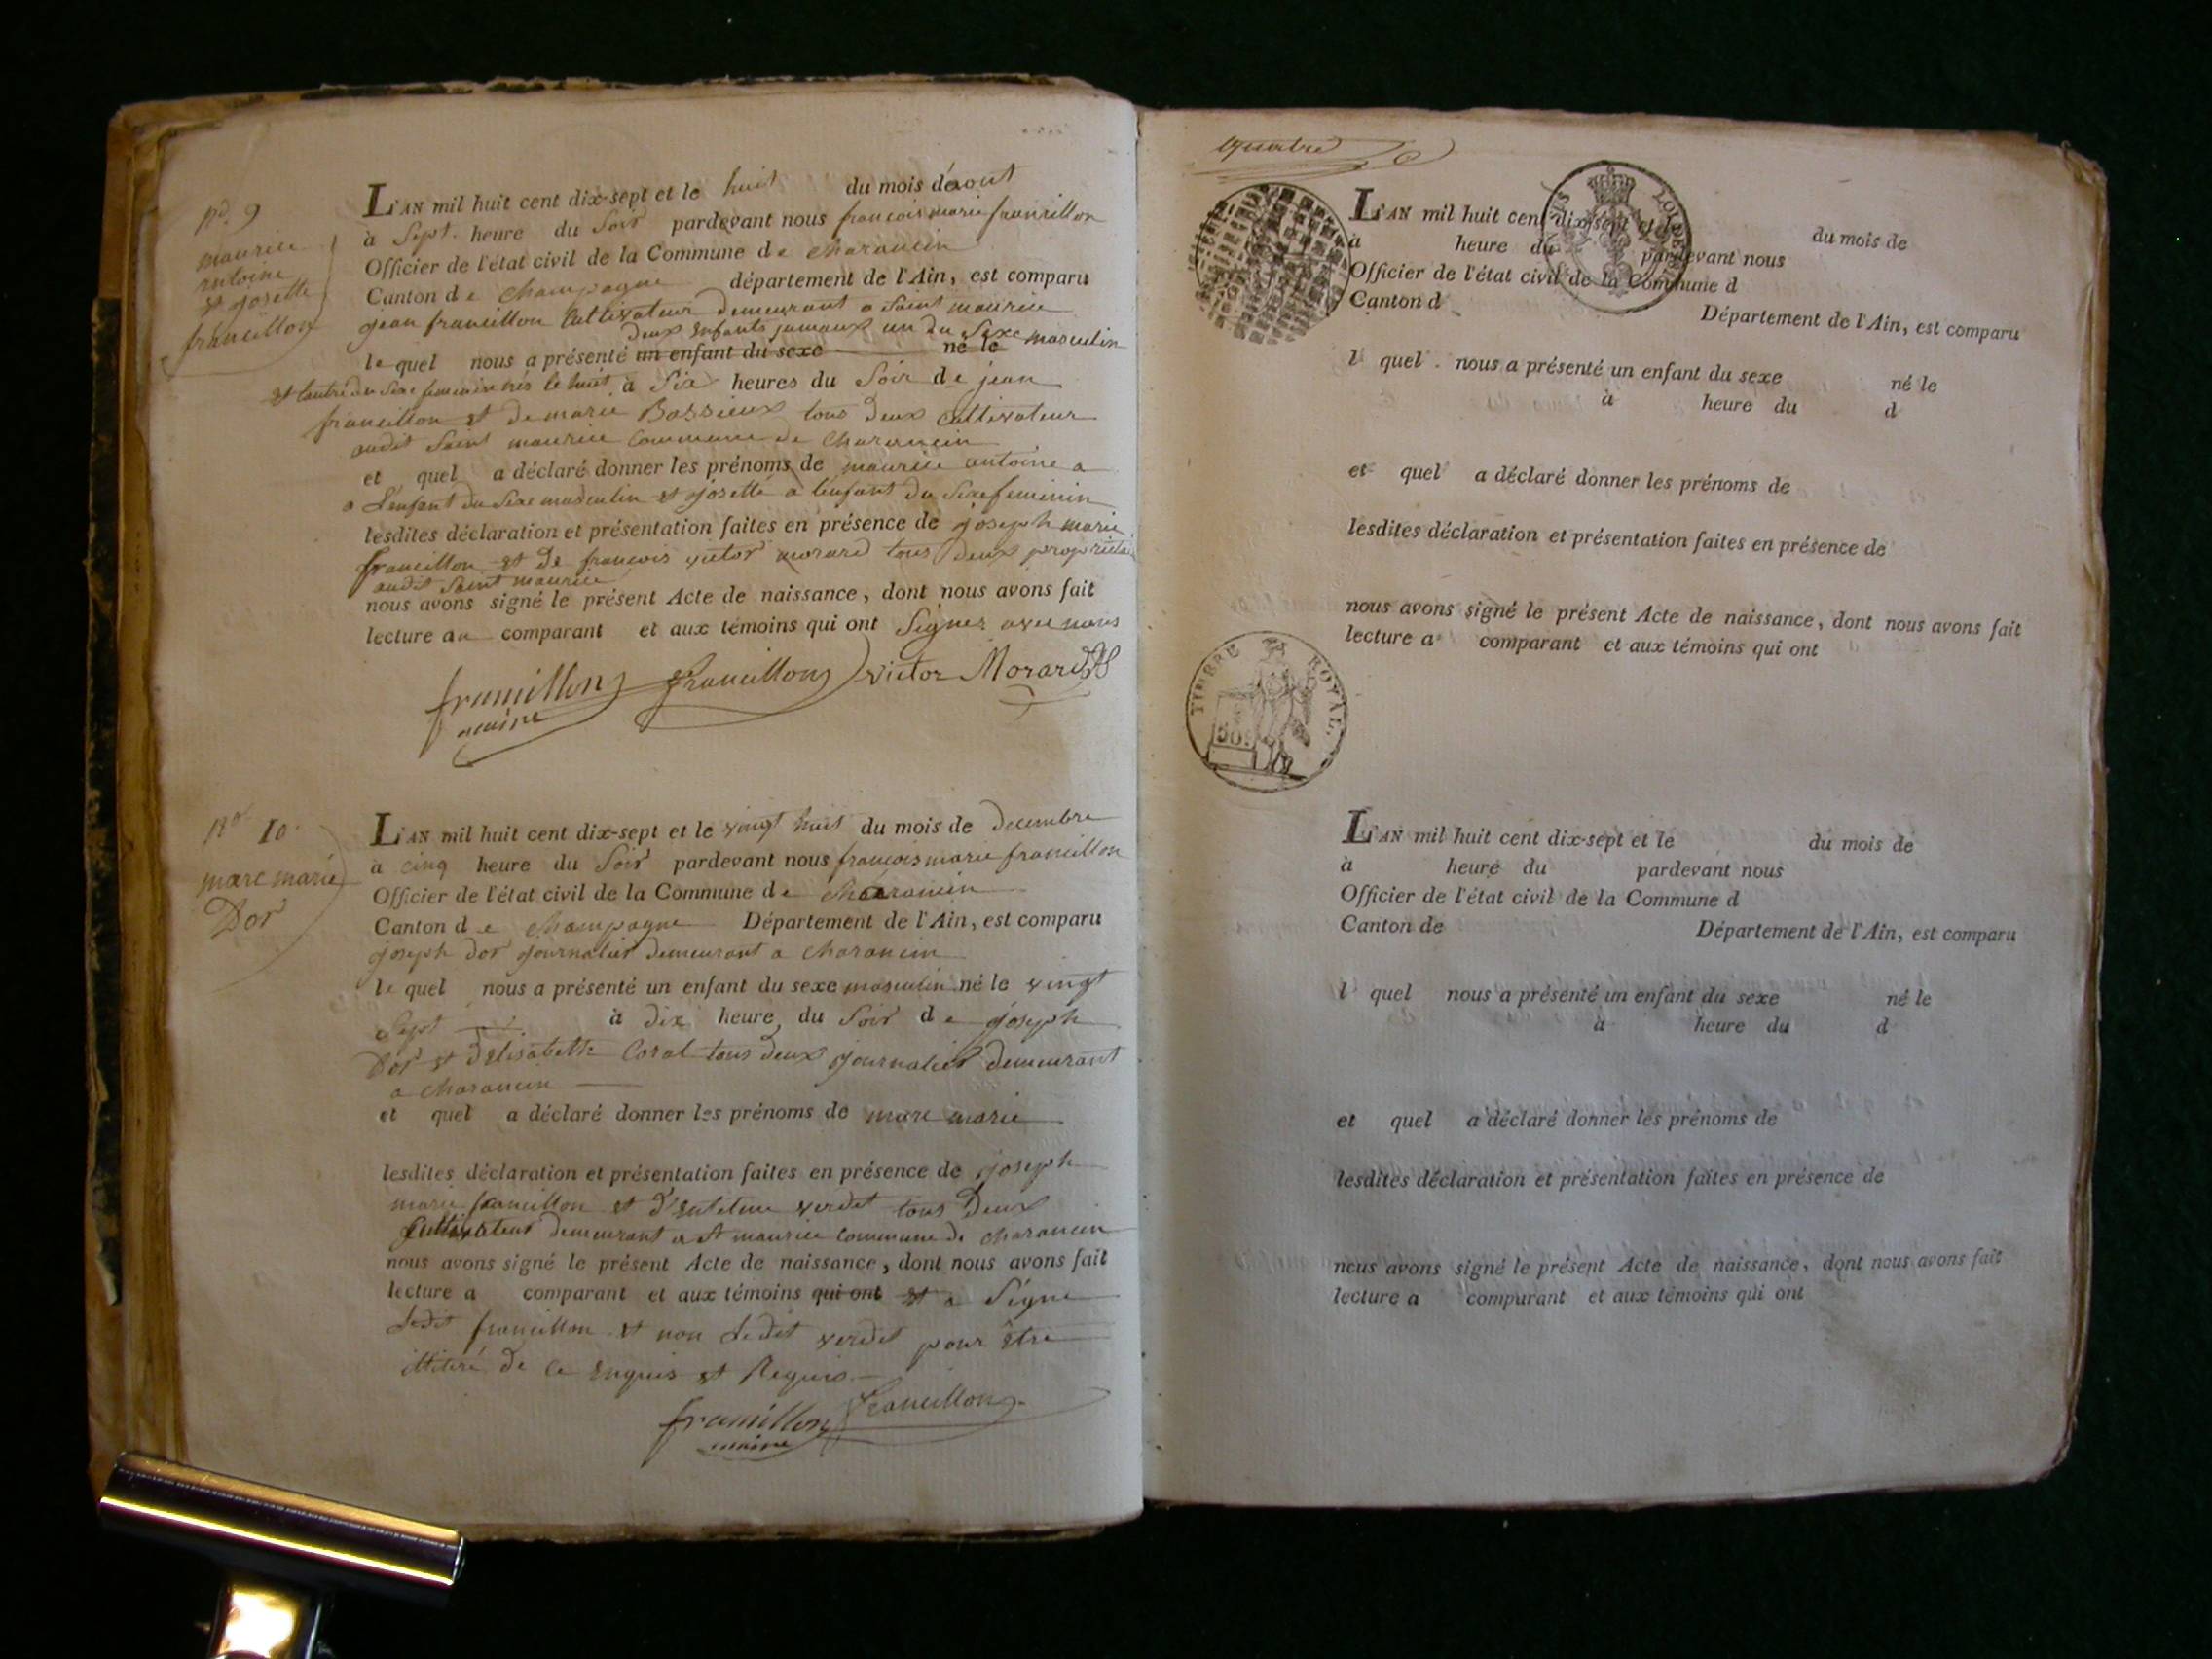 no. 9
maurice
antoine
et josette
francillon
L'AN mil huit cent dix-sept et le huit du mois d'aout
à Sept heure du Soir pardevant nous francois marie francillon
Officier de l'état civil de la Commune de charancin
Canton de champagne département de l'Ain, est comparu
jean francillon Cultivateur demeurant a Saint maurice
deux enfants jumaux un du Sexe masculin
le quel nous a présenté un enfant du sexe né le
et l'autre du Sexe feminin nés le huit à Six heures du Soir de jean
francillon et de marie Bassieux tous deux Cultivateur
audit Saint maurice Commune de Charancin
et quel a déclaré donner les prénoms de maurice antoine a
a L'enfant du Sexe masculin et josette a l'enfant du Sexe feminin
lesdites déclaration et présentation faites en présence de joseph marie
francillon et de francois victor morard tous deux propriétai
audit Saint maurice
nous avons signé le présent Acte de naissance, dont nous avons fait
lecture au comparant et aux témoins qui ont Signer avec nous
francillon francillon victor Morard
maire
no. 10.
marc marie
Dor
L'AN mil huit cent dix-sept et le vingt huit du mois de decembre
à cinq heure du Soir pardevant nous francois marie francillon
Officier de l'état civil de la Commune de Charancin
Canton de champagne Département de l'Ain, est comparu
joseph Dor journalier demeurant a charancin
le quel nous a présenté un enfant du sexe masculin né le vingt
Sept à dix heure du Soir de joseph
Dor et d'Elisabeth Coral tous deux journalier demeurant
a charancin
et quel a déclaré donner les prénoms de marc marie
lesdites déclaration et présentation faites en présence de joseph
marie francillon et d'entelme verdet tous deux
Cultivateur demeurant a St maurice Commune de charancin
nous avons signé le présent Acte de naissance, dont nous avons fait
lecture a comparant et aux témoins qui ont et a Signe
Ledit francillon et non Ledit verdet pour être
illiteré de ce enquis et Requis.
francillon francillon
maire
quatre
L'AN mil huit cent dix-sept et le du mois de
à heure du pardevant nous
Officier de l'état civil de la Commune d
Canton d Département de l'Ain, est comparu
l quel nous a présenté un enfant du sexe né le
à heure du d
et quel a déclaré donner les prénoms de
lesdites déclaration et présentation faites en présence de
nous avons signé le présent Acte de naissance, dont nous avons fait
lecture a comparant et aux témoins qui ont
TIMBRE ROYAL
50
L'AN mil huit cent dix-sept et le du mois de
à heure du pardevant nous
Officier de l'état civil de la Commune d
Canton de Département de l'Ain, est comparu
l quel nous a présenté un enfant du sexe né le
à heure du d
et quel a déclaré donner les prénoms de
lesdites déclaration et présentation faites en présence de
nous avons signé le présent Acte de naissance, dont nous avons fait
lecture a comparant et aux témoins qui ont